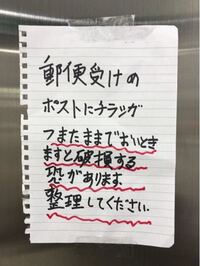 郵便受けの
ポストにチラシガ
つまたままでおいとき
ますと破損する
恐があります.
整理してください.